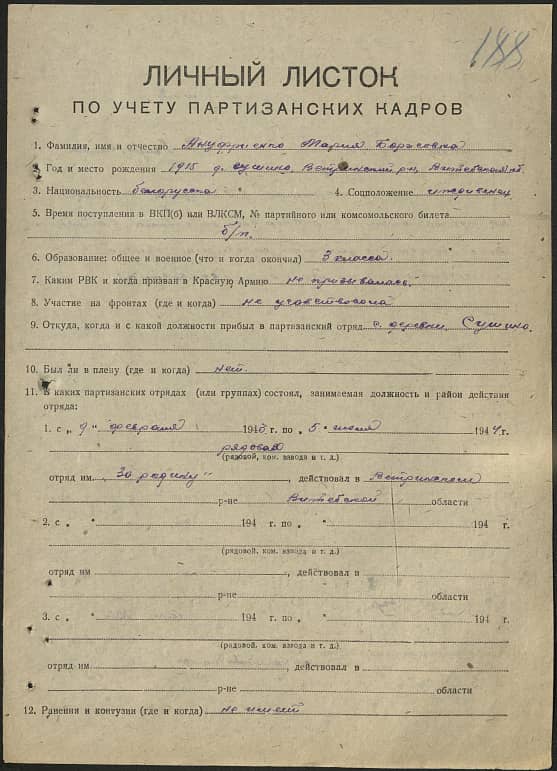 188
ЛИЧНЫЙ ЛИСТОК
ПО УЧЕТУ ПАРТИЗАНСКИХ КАДРОВ
1. Фамилия, имя и отчество Ануфриенко Мария Борисовна
2. Год и место рождения 1915 д. Сушино, Ветринский р-н, Витебской обл.
3. Национальность белоруска 4. Соцположение иждивенец
5. Время поступления в ВКП(б) или ВЛКСМ, № партийного или комсомольского билета
б/п.
6. Образование: общее и военное (что и когда окончил) 3 класса.
7. Каким РВК и когда призван в Красную Армию не призывалась.
8. Участие на фронтах (где и когда) не участвовала
9. Откуда, когда и с какой должности прибыл в партизанский отряд с деревни, Сушино.
10. Был ли в плену (где и когда) нет.
11. В каких партизанских отрядах (или группах) состоял, занимаемая должность и район действия
отряда:
1. с „ 9 " февраля 1943 г. по „ 5 " июня 1944 г.
рядовая
(рядовой, ком. взвода и т. д.)
отряд им. „За родину" , действовал в Ветринском
р-не Витебской области
2. с „ " 194 г. по „ " 194 г.
(рядовой, ком. взвода и т. д.)
отряд им , действовал в
р-не области
3. с „ " 194 г. по „ " 194 г.
(рядовой, ком. взвода и т. д.)
отряд им , действовал в
р-не области
12. Ранения и контузии (где и когда) не имеет